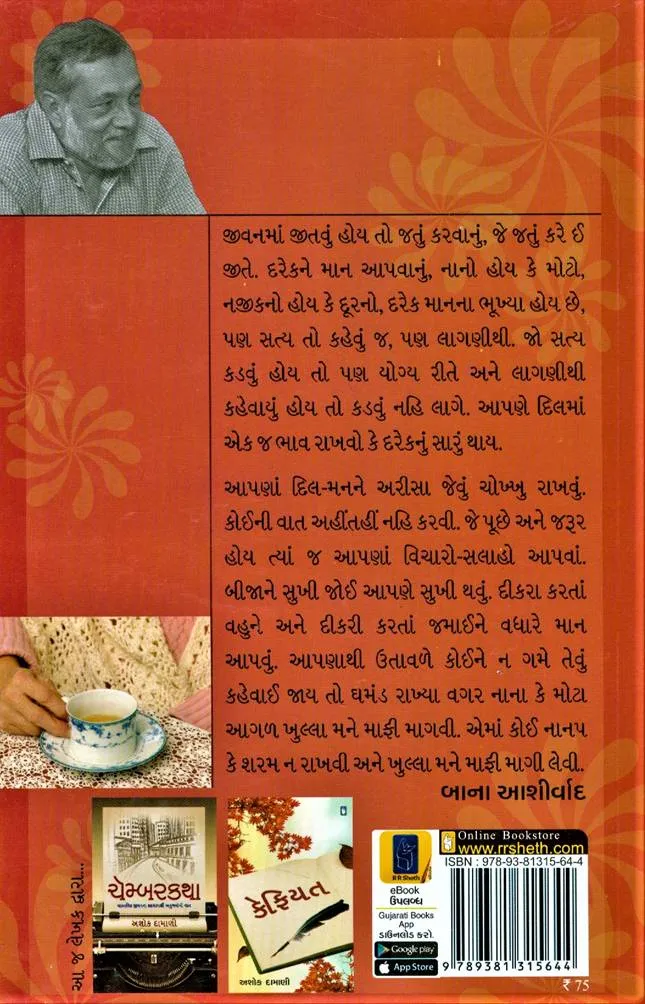 જીવનમાં જીતવું હોય તો જતું કરવાનું, જે જતું કરે ઈ
જીતે. દરેકને માન આપવાનું, નાનો હોય કે મોટો,
નજીકનો હોય કે દૂરનો, દરેક માનના ભૂખ્યા હોય છે,
પણ સત્ય તો કહેવું જ, પણ લાગણીથી. જો સત્ય
કડવું હોય તો પણ યોગ્ય રીતે અને લાગણીથી
કહેવાયું હોય તો કડવું નહિ લાગે. આપણે દિલમાં
એક જ ભાવ રાખવો કે દરેકનું સારું થાય.
આપણાં દિલ-મનને અરીસા જેવું ચોખ્ખુ રાખવું.
કોઈની વાત અહીંતહીં નહિ કરવી. જે પૂછે અને જરૂર
હોય ત્યાં જ આપણાં વિચારો-સલાહો આપવાં.
બીજાને સુખી જોઈ આપણે સુખી થવું. દીકરા કરતાં
વહુને અને દીકરી કરતાં જમાઈને વધારે માન
આપવું. આપણાથી ઉતાવળે કોઈને ન ગમે તેવું
કહેવાઈ જાય તો ઘમંડ રાખ્યા વગર નાના કે મોટા
આગળ ખુલ્લા મને માફી માગવી. એમાં કોઈ નાનપ
કે શરમ ન રાખવી અને ખુલ્લા મને માફી માગી લેવી.
બાના આશીર્વાદ
આ જ લેખક દ્વારા...
ચેમ્બરકથા
અશોક દામાણી
કેફિયત
અશોક દામાણી
R R Sheth
eBook
ઉપલબ્ધ
Gujarati Books
App
ડાઉનલોડ કરો.
Google play
App Store
Online Bookstore
www.rrsheth.com
ISBN : 978-93-81315-64-4
9 789381 315644
₹ 75